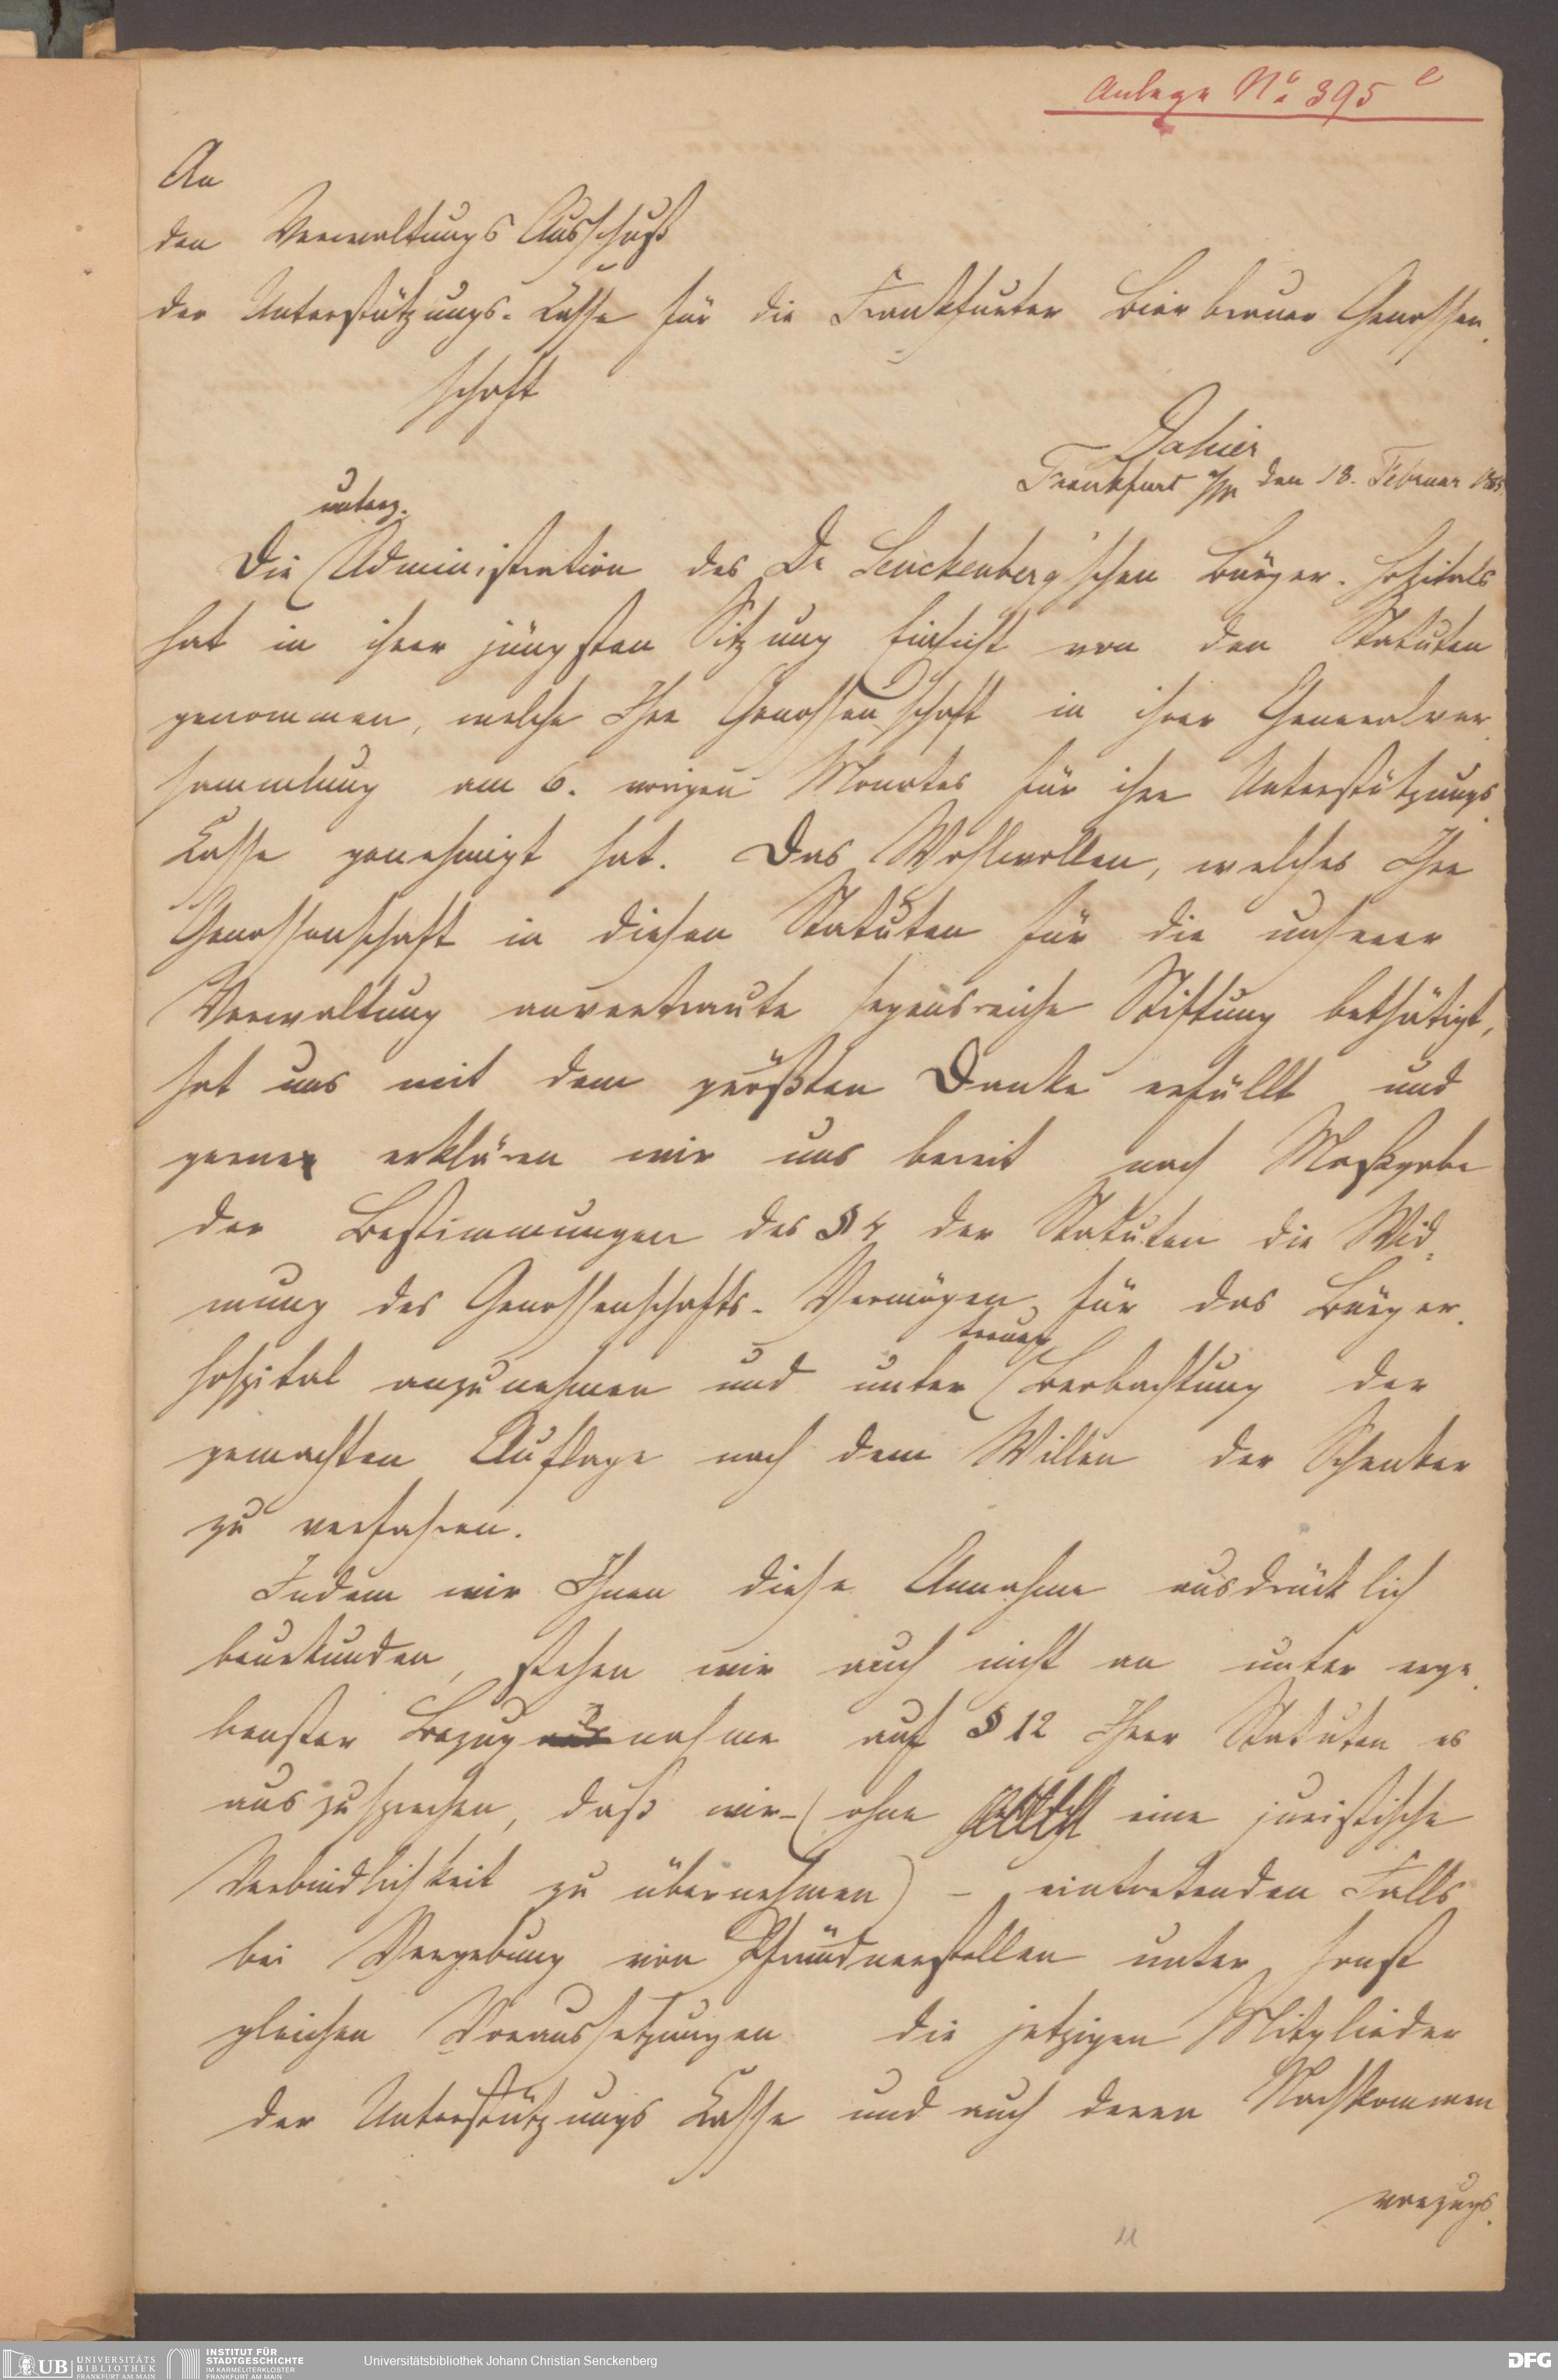 Anlage No 395 e
An
den Verwaltungs Ausschuß
der Unterstützungs-Casse für die Frankfurter Bierbrauer Genossen-
schaft
Dahier
Frankfurt a/M den 18. Februar
unterz.
Die Administration des Dr Senckenberg'schen Bürger-Hospitals
hat in ihrer jüngsten Sitzung Einsicht von den Statuten
genommen, welche Ihre Genossenschaft in ihrer Generalver-
sammlung am 6. vorigen Monates für ihre Unterstützungs-
Casse genehmigt hat. Das Wohlwollen, welches Ihre
Genossenschaft in diesen Statuten für die unserer
Verwaltung anvertraute segensreiche Stiftung bethätigt,
hat uns mit dem größten Danke erfüllt und
gerne erklären wir uns bereit nach Maßgabe
der Bestimmungen des § 4 der Statuten die Wid-
mung des Genossenschafts-Vermögens für das Bürger-
treuer
hospital anzunehmen und unter Beobachtung der
gemachten Auflage nach dem Willen der Schenker
zu verfahren.
Indem wir Ihnen diese Annahme ausdrücklich
beurkunden, stehen wir auch nicht an unter erge-
benster Bezugnahme auf § 12 Ihrer Statuten es
auszusprechen, daß wir - (ohne eine juristische
Verbindlichkeit zu übernehmen) - eintretenden Falls
bei Vergebung von Pfründnerstellen unter sonst
gleichen Voraussetzungen die jetzigen Mitglieder
der Unterstützungs Casse und auch deren Nachkommen
vorzugs-
11
UB UNIVERSITÄTS
BIBLIOTHEK
FRANKFURT AM MAIN
INSTITUT FÜR
STADTGESCHICHTE
IM KARMELITERKLOSTER
FRANKFURT AM MAIN
Universitätsbibliothek Johann Christian Senckenberg
DFG